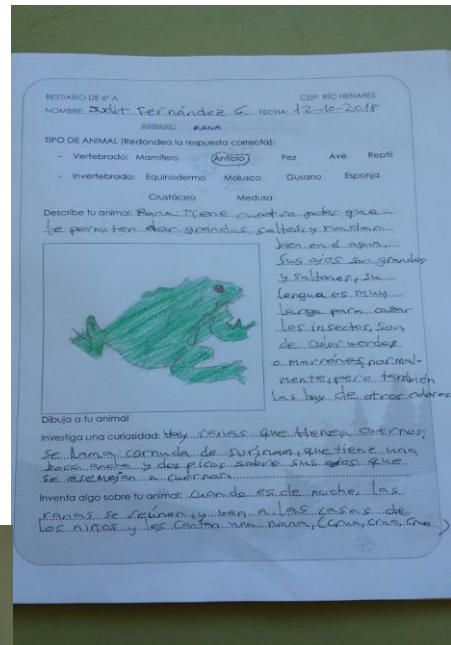 BESTIARIO DE 6º A CEIP RÍO HENARES
NOMBRE Judit Fernández G. FECHA: 12-10-2018
ANIMAL: RANA
TIPO DE ANIMAL (Redondea la respuesta correcta):
- Vertebrado: Mamífero Anfibio Pez Ave Reptil
- Invertebrado: Equinodermo Molusco Gusano Esponja
Crustáceo Medusa
Describe tu animal: Rana: Tiene cuatro patas que
le permiten dar grandes saltos y nadan
bien en el agua,
sus ojos son grandes
y saltones, su
lengua es muy
larga para cazar
los insectos, son
de color verdes
o marrones, normal-
mente, pero también
las hay de otros colores
Dibuja a tu animal
Investiga una curiosidad: Hay ranas que tienen cuernos,
se llama cornuda de surinam, que tiene una
boca ancha y dos picos sobre sus ojos que
se asemejan a cuernos.
Inventa algo sobre tu animal: Cuando es de noche, las
ranas se reúnen, y van a las casas de
los niños y les cantan una nana, (crua, crua, crua)